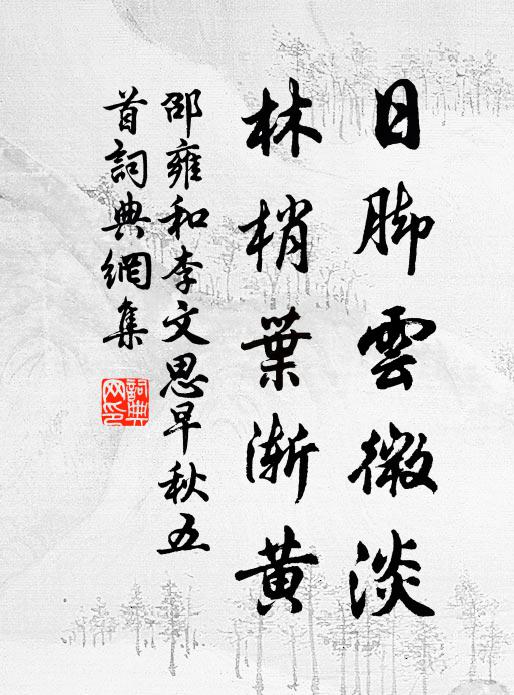 日脚雲微淡
林梢葉漸黄
邵雍和李文思早秋五
首詞典網集
詞典網印